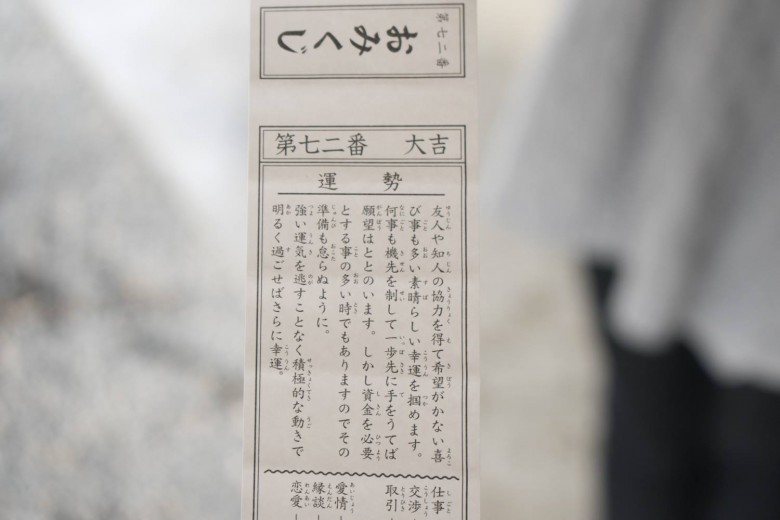 第七二番
おみくじ
第七二番　大吉
運勢
友人や知人の協力を得て希望がかない喜
び事も多い素晴らしい幸運を掴めます。
何事も機先を制して一歩先に手をうてば
願望はととのいます。しかし資金を必要
とする事の多い時でもありますのでその
準備も怠らぬように。
強い運気を逃すことなく積極的な動きで
明るく過ごせばさらに幸運。
仕事
交渉
取引
愛情
縁談
恋愛